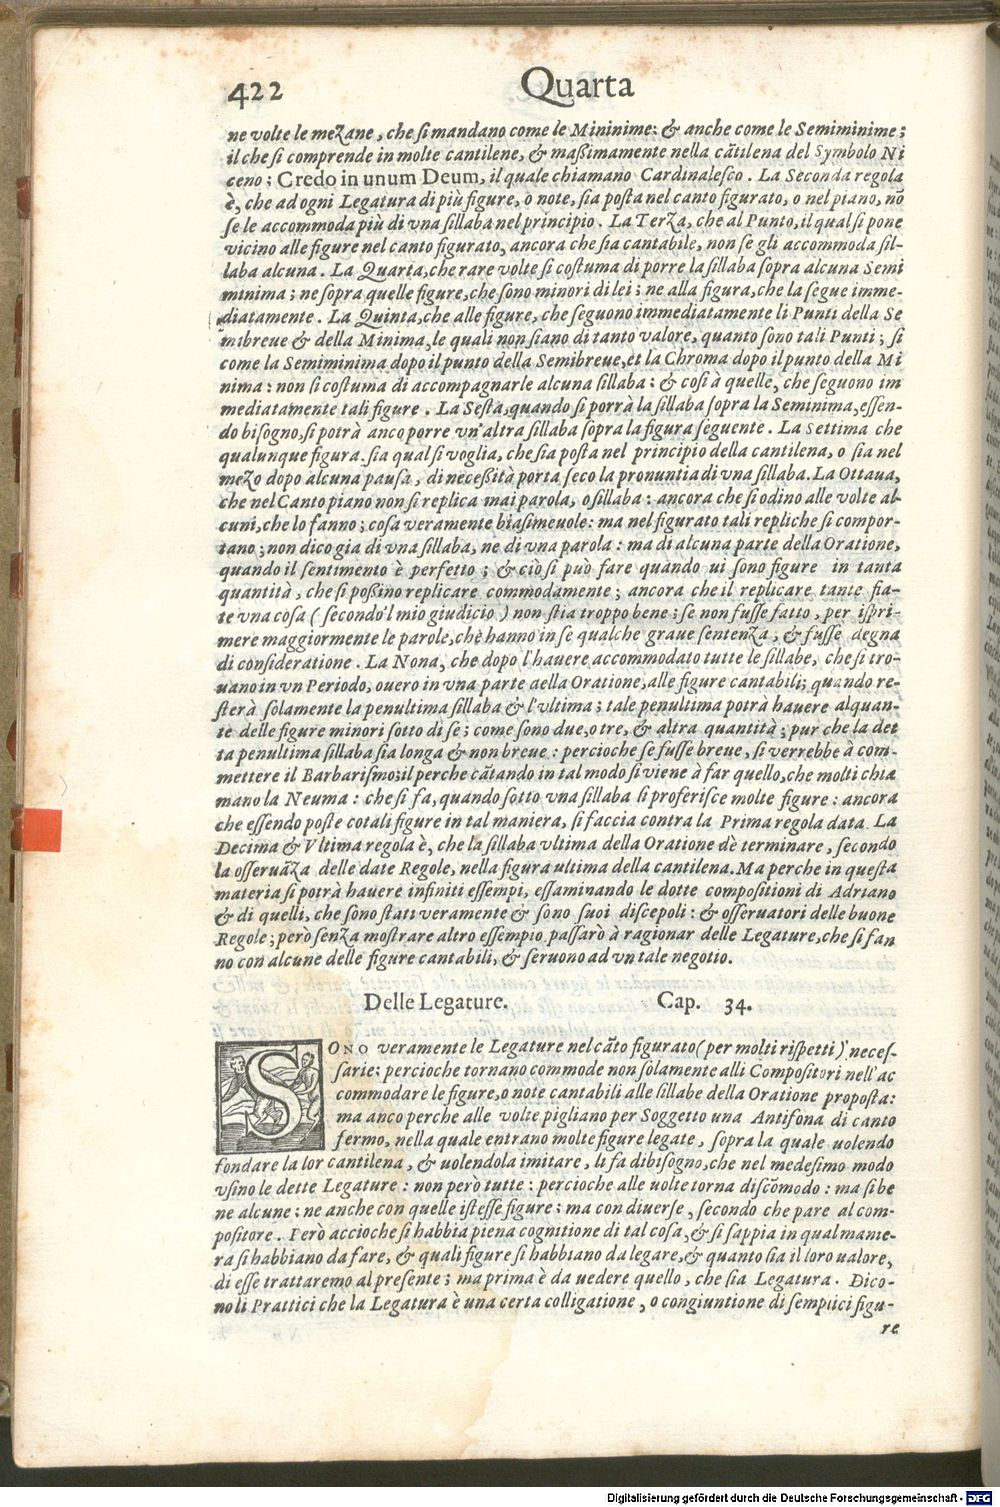 422 Quarta
ne volte le mezane, che si mandano come le Mininime: & anche come le Semiminime;
il che si comprende in molte cantilene, & maßimamente nella cãtilena del Symbolo Ni
ceno; Credo in unum Deum, il quale chiamano Cardinalesco. La Seconda regola
è, che ad ogni Legatura di più figure, o note, sia posta nel canto figurato, o nel piano, nõ
se le accommoda più di vna sillaba nel principio. La Terza, che al Punto, il qual si pone
vicino alle figure nel canto figurato, ancora che sia cantabile, non se gli accommoda sil-
laba alcuna. La Quarta, che rare volte si costuma di porre la sillaba sopra alcuna Semi
minima; ne sopra quelle figure, che sono minori di lei; ne alla figura, che la segue imme-
diatamente. La Quinta, che alle figure, che seguono immediatamente li Punti della Se
mibreue & della Minima, le quali non siano di tanto valore, quanto sono tali Punti; si
come la Semiminima dopo il punto della Semibreue, et la Chroma dopo il punto della Mi
nima: non si costuma di accompagnarle alcuna sillaba: & così à quelle, che seguono im
mediatamente tali figure. La Sesta, quando si porrà la sillaba sopra la Seminima, essen-
do bisogno, si potrà anco porre vn'altra sillaba sopra la figura seguente. La Settima che
qualunque figura sia qual si voglia, che sia posta nel principio della cantilena, o sia nel
mezo dopo alcuna pausa, di neceßità porta seco la pronuntia di vna sillaba. La Ottaua,
che nel Canto piano non si replica mai parola, o sillaba: ancora che si odino alle volte al-
cuni, che lo fanno; cosa veramente biasimeuole: ma nel figurato tali repliche si compor-
tano; non dico gia di vna sillaba, ne di vna parola: ma di alcuna parte della Oratione,
quando il sentimento è perfetto; & ciò si può fare quando ui sono figure in tanta
quantità, che si poßino replicare commodamente; ancora che il replicare tante fia-
te vna cosa (secondo'l mio giudicio) non stia troppo bene; se non fusse fatto, per ispri-
mere maggiormente le parole, che hanno in se qualche graue sentenza, & fusse degna
di consideratione. La Nona, che dopo l'hauere accommodato tutte le sillabe, che si tro-
uano in vn Periodo, ouero in vna parte della Oratione, alle figure cantabili; quando re-
sterà solamente la penultima sillaba & l'vltima; tale penultima potrà hauere alquan-
te delle figure minori sotto di se; come sono due, o tre, & altra quantità; pur che la det
ta penultima sillaba sia longa & non breue: percioche se fusse breue, si verrebbe à com-
mettere il Barbarismo; il perche cãtando in tal modo si viene à far quello, che molti chia
mano la Neuma: che si fa, quando sotto vna sillaba si proferisce molte figure: ancora
che essendo poste cotali figure in tal maniera, si faccia contra la Prima regola data. La
Decima & Vltima regola è, che la sillaba vltima della Oratione dè terminare, secondo
la osseruãza delle date Regole, nella figura ultima della cantilena. Ma perche in questa
materia si potrà hauere infiniti essempi, essaminando le dotte compositioni di Adriano
& di quelli, che sono stati veramente & sono suoi discepoli: & osseruatori delle buone
Regole; però senza mostrare altro essempio passarò à ragionar delle Legature, che si fan
no con alcune delle figure cantabili, & seruono ad vn tale negotio.
Delle Legature. Cap. 34.
SONO veramente le Legature nel cãto figurato (per molti rispetti) neces-
sarie; percioche tornano commode non solamente alli Compositori nell'ac
commodare le figure, o note cantabili alle sillabe della Oratione proposta:
ma anco perche alle volte pigliano per Soggetto una Antifona di canto
fermo, nella quale entrano molte figure legate, sopra la quale uolendo
fondare la lor cantilena, & uolendola imitare, li fa dibisogno, che nel medesimo modo
vsino le dette Legature: non però tutte: percioche alle uolte torna discõmodo: ma si be
ne alcune: ne anche con quelle istesse figure; ma con diuerse, secondo che pare al com-
positore. Però accioche si habbia piena cognitione di tal cosa, & si sappia in qual manie-
ra si habbiano da fare, & quali figure si habbiano da legare, & quanto sia il loro ualore,
di esse trattaremo al presente; ma prima è da uedere quello, che sia Legatura. Dico-
no li Prattici che la Legatura è una certa colligatione, o congiuntione di semplici figu-
re
Digitalisierung gefördert durch die Deutsche Forschungsgemeinschaft - DFG